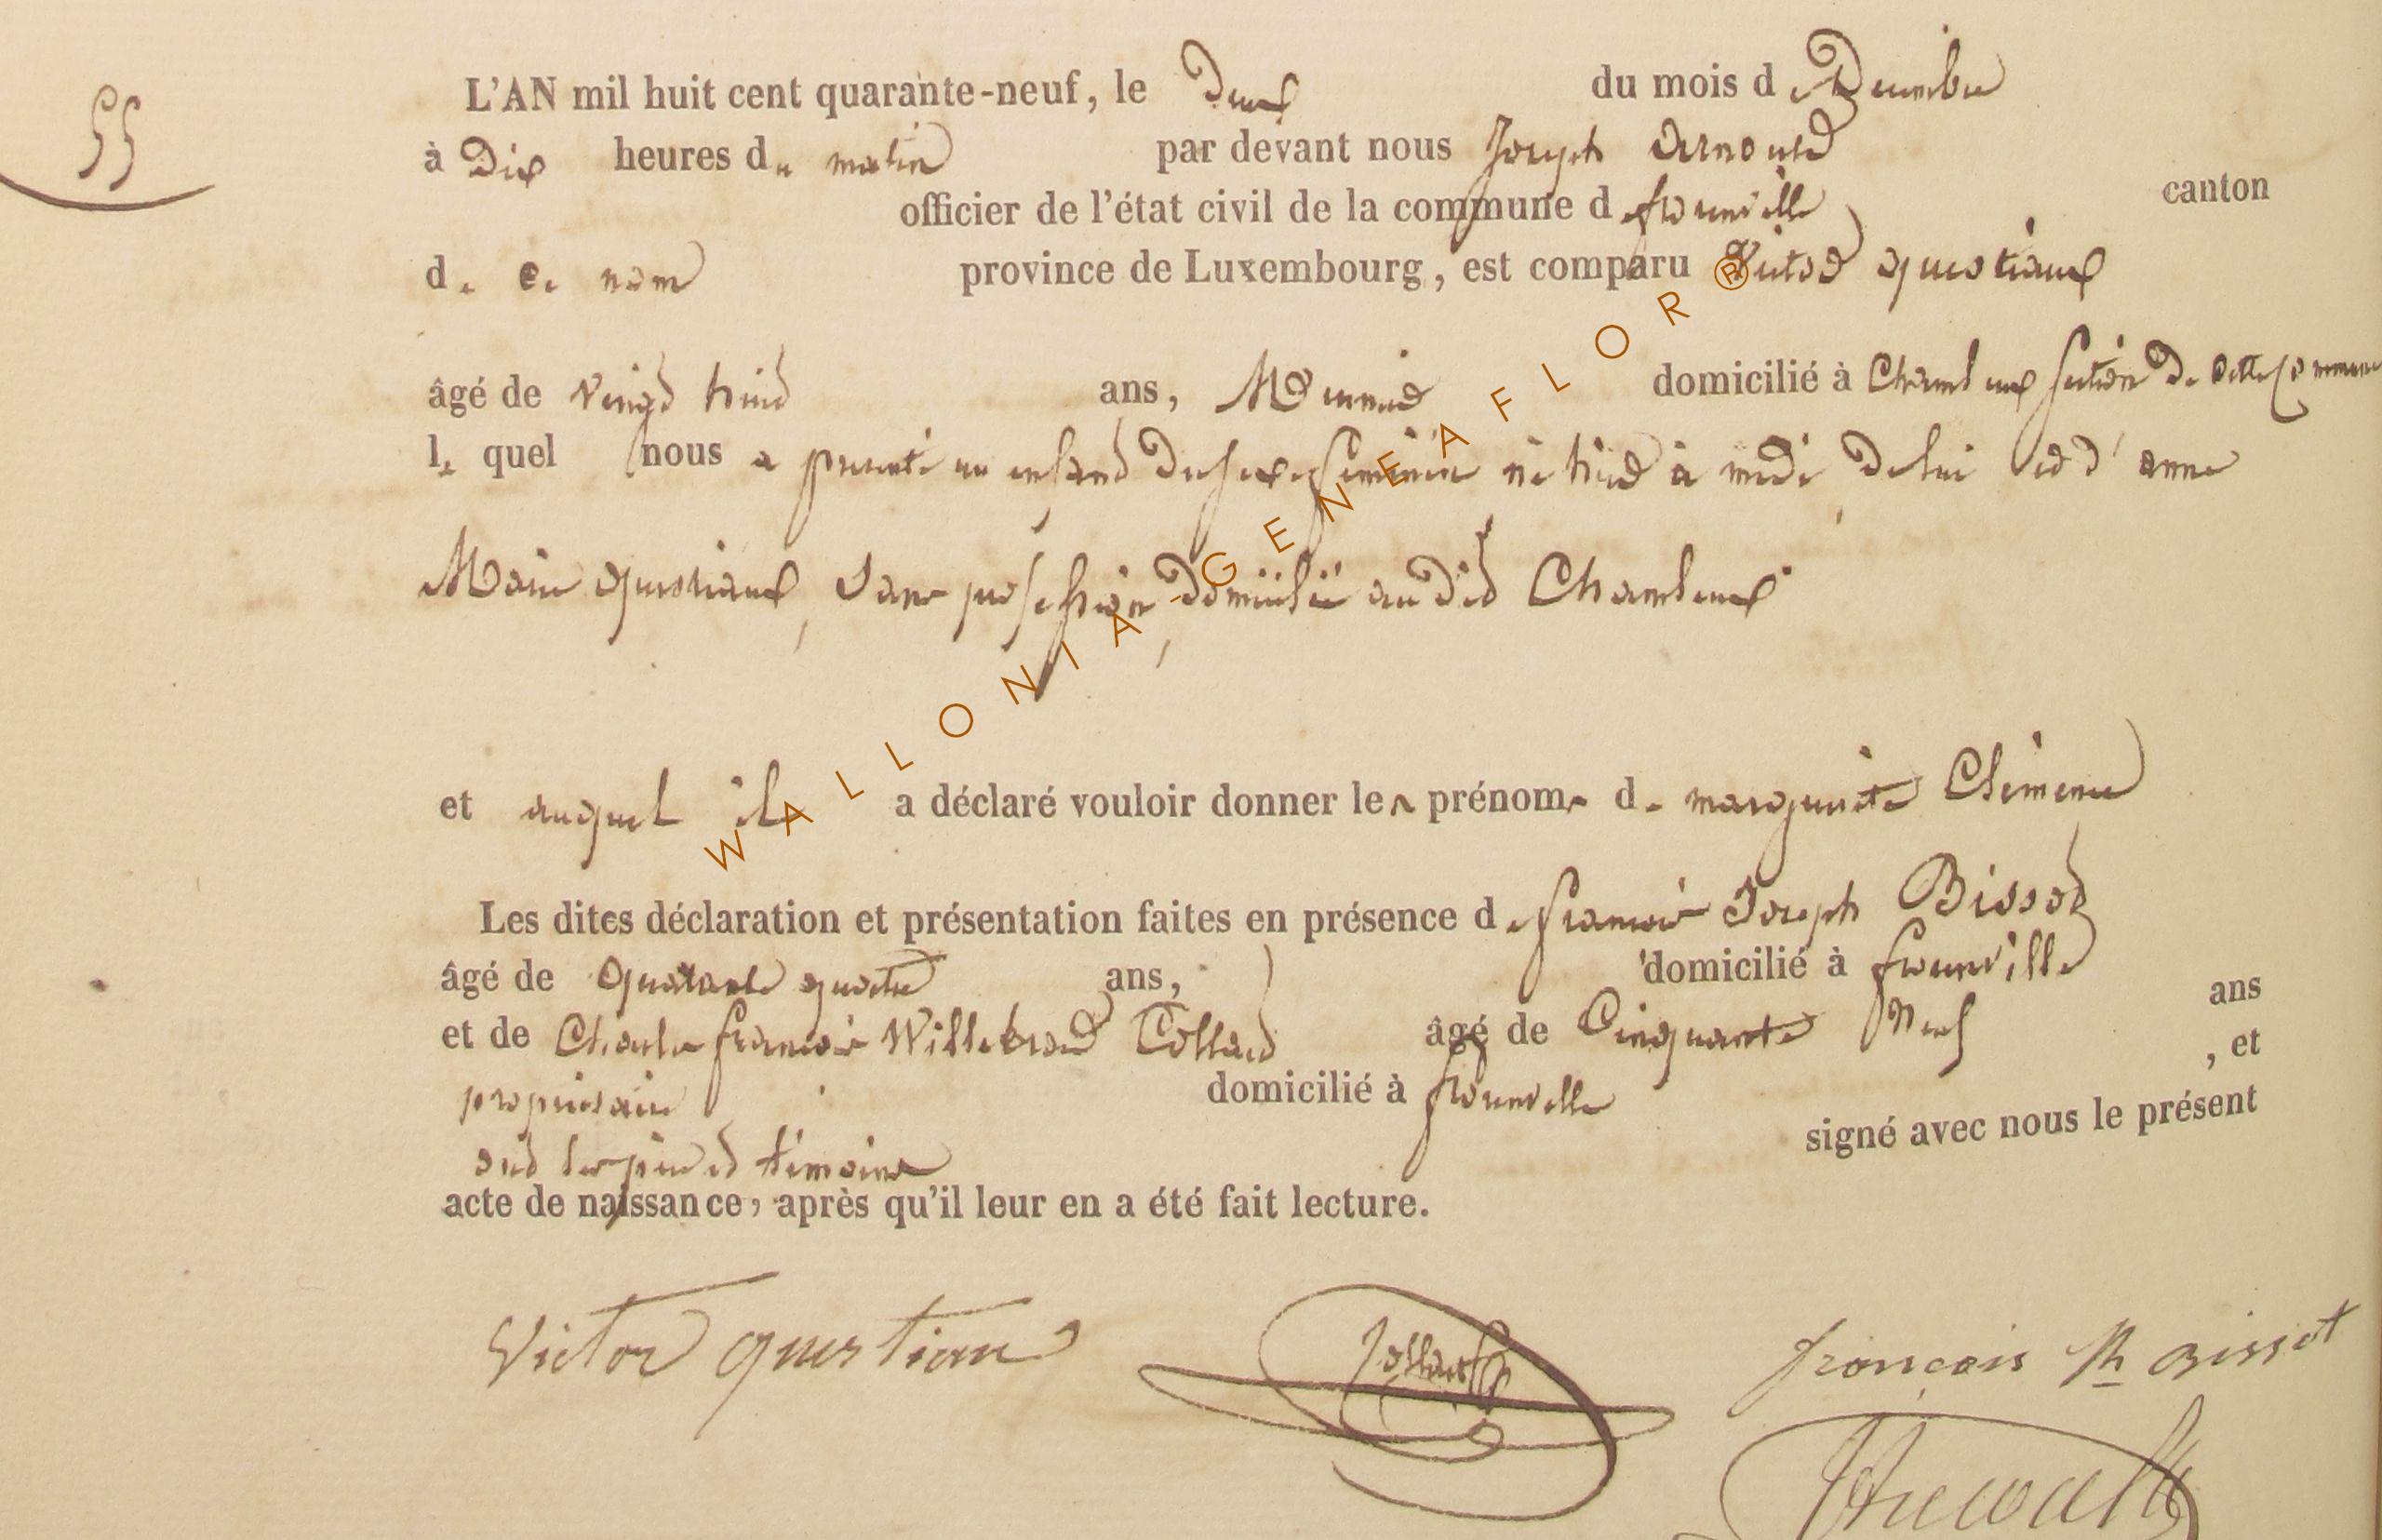 55
L'AN mil huit cent quarante-neuf, le Deux du mois de Decembre
à Dix heures du matin par devant nous Joseph Arnould
officier de l'état civil de la commune de florenville canton
de ce nom province de Luxembourg, est comparu Victor questiaux
âgé de Vingt huit ans, domicilié à Chameleux section de cette Commune
lequel nous a presenté un enfant du sexe feminin né hier à midi de lui et d'anne
Marie questiaux, sans profession, domicilié au dit Chameleux
et auquel il a déclaré vouloir donner les prénoms de marguerite Clémence
Les dites déclaration et présentation faites en présence de francois Joseph Bissot
âgé de quarante quatre ans, domicilié à florenville
et de Charles francois Willebrord Collard âgé de Cinquante Neuf ans
propriétaire domicilié à florenville , et
ont les père et témoins signé avec nous le présent
acte de naissance, après qu'il leur en a été fait lecture.
Victor questiau
Collard
françois Jh Bissot
WALLONIA - GENEAFLOR ®